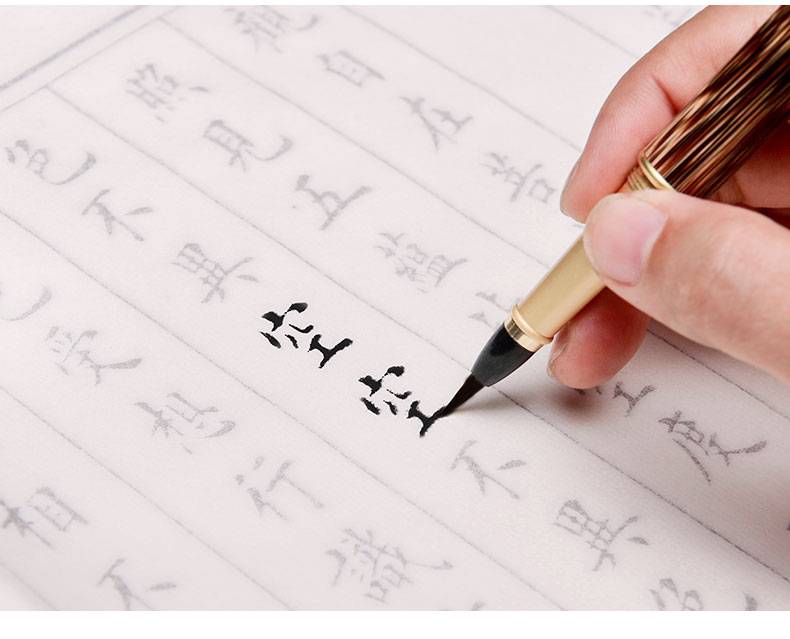 觀自在菩
照見五蘊度
色不異空空不異色
受想行識
相不